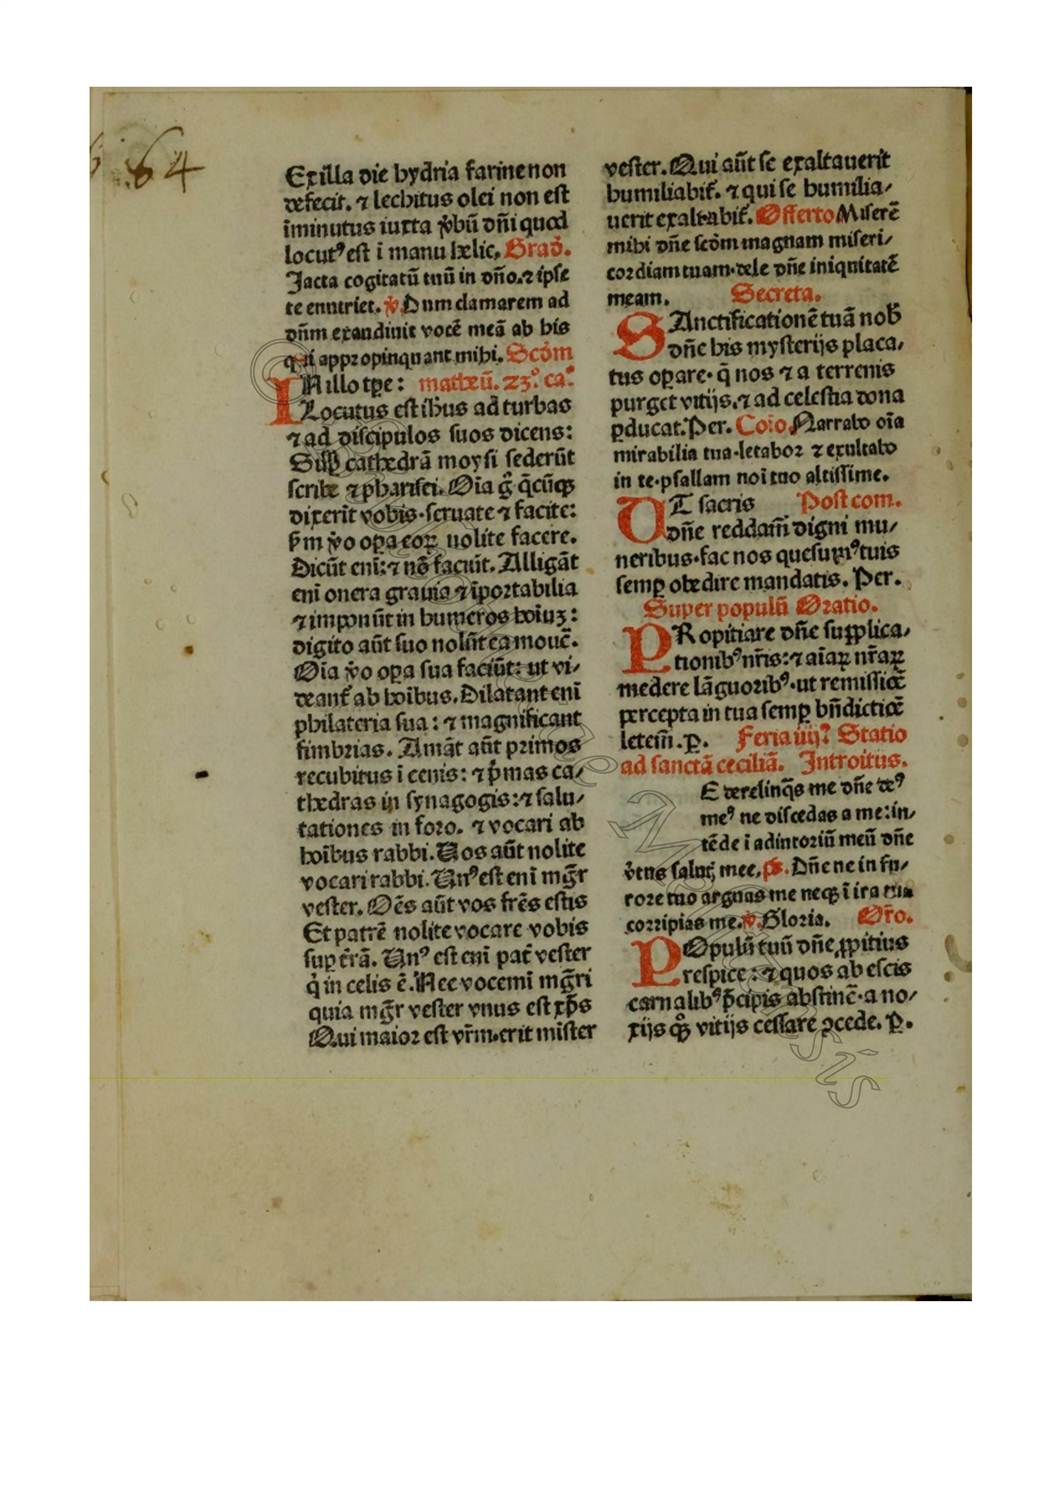 64
Ex illa die hydria farine non
defecit. ⁊ lechitus olei non est
īminutus iuxta v̓bū dn̄i quod
locut⁹ est ī manu helie. Grad̓.
Jacta cogitatū tuū in dn̄o.⁊ ipse
te enutriet. ℣. Dum clamarem ad
dn̄m exaudiuit vocē meā ab his
qui appropinquant mihi. Scd̓m
IN illo tp̄e : matheū. 23.º ca.º
Locutus est ih̄us ad turbas
⁊ ad discipulos suos dicens:
Sup̄ cathedrā moysi sederūt
scribe ⁊ pharisei. Oīa g̊ q̄cūqꝫ
dixerīt vobis·seruate ⁊ facite:
ẜm v̓o oꝑa eoꝝ nolite facere.
Dicūt eni̅: ⁊ nō faciūt. Alligāt
enī onera grauia ⁊ īportabilia
⁊ imponūt in humeros hoīuꝫ :
digito aūt suo nolūt ea mouē.
Oīa v̓o oꝑa sua faciūt: ut vi⸗
deant̄ ab hoībus. Dilatant enī
philateria sua : ⁊ magnificant
fimbrias. Amāt aūt primos
recubitus ī cenis : ⁊ p̄mas ca⸗
thedras in synagogis: ⁊ salu⸗
tationes in foro. ⁊ vocari ab
hoībus rabbi. Vos aūt nolite
vocari rabbi. Vn⁹ est enī mg̅r
vester. Oēs aūt vos frēs estis
Et patrē nolite vocare vobis
suꝑ t̄rā. Vn⁹ est enī pat̄ vester
q̓ in celis ē. Nec vocemī mg̅ri
quia mg̅r vester vnus est xp̄s
Qui maior est vr̄m·erit mīster
vester. Qui aūt se exaltauerit
humiliabit̄. ⁊ qui se humilia⸗
uerit exaltabit̄. Offerto Miserē
mihi dn̄e scd̓m magnam miseri⸗
cordiam tuam·dele dn̄e iniquitatē
meam. Secreta.
SAnctificationē tuā nob̄
dn̄e his mysterijs placa⸗
tus oꝑare· q̄ nos ⁊ a terrenis
purget vitijs.⁊ ad celestia dona
ꝑducat. Per. Cōio. Narrabo oīa
mirabilia tua·letabor ⁊ exultabo
in te·psallam noī tuo altissime.
UT sacris Post com.
dn̄e reddam̄ digni mu⸗
neribus·fac nos quesum⁹ tuis
semꝑ obedire mandatis. Per.
Super populū Oratio.
PRopitiare dn̄e supplica⸗
tionib⁹ nr̄is: ⁊ aīaꝝ nr̄aꝝ
medere lāguorib⁹·ut remissiōe
percepta in tua semꝑ bn̄dictiōe
letem̄. P. Feria iiij.ᵃ Statio
ad sanctā ceciliā. Introitus.
E derelinq̄s me dn̄e de⁹
me⁹ ne discedas a me: in⸗
tēde ī adiutoriū meū dn̄e
v̓tus salut̄ mee. ps. Dn̄e ne in fu⸗
rore tuo arguas me neqꝫ ī ira tua
corripias me. ℣. Gloria. Or̄o.
POpulū tuū dn̄e ꝓpitius
respice : ⁊ quos ab escis
carnalib⁹ p̄cipis abstinē·a no⸗
xijs qꝫ vitijs cessare ꝯcede. P.